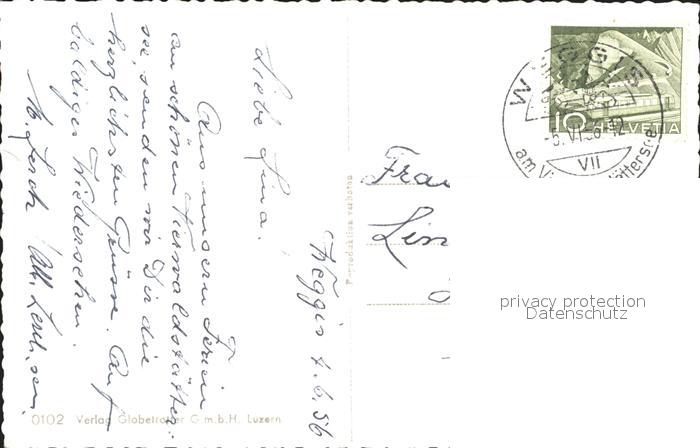 Weggis 4.6.56
Liebe Lina.
Aus unsern Ferien
am schönen Vierwaldstätter-
see senden wir Dir die
herzlichsten Grüsse. Auf
baldiges Wiedersehen.
0102 Verlag Globetrotter G.m.b.H. Luzern
Reproduktion verboten
WEGGIS
10 HELVETIA
VII
Frau
Lin
privacy protection
Datenschutz